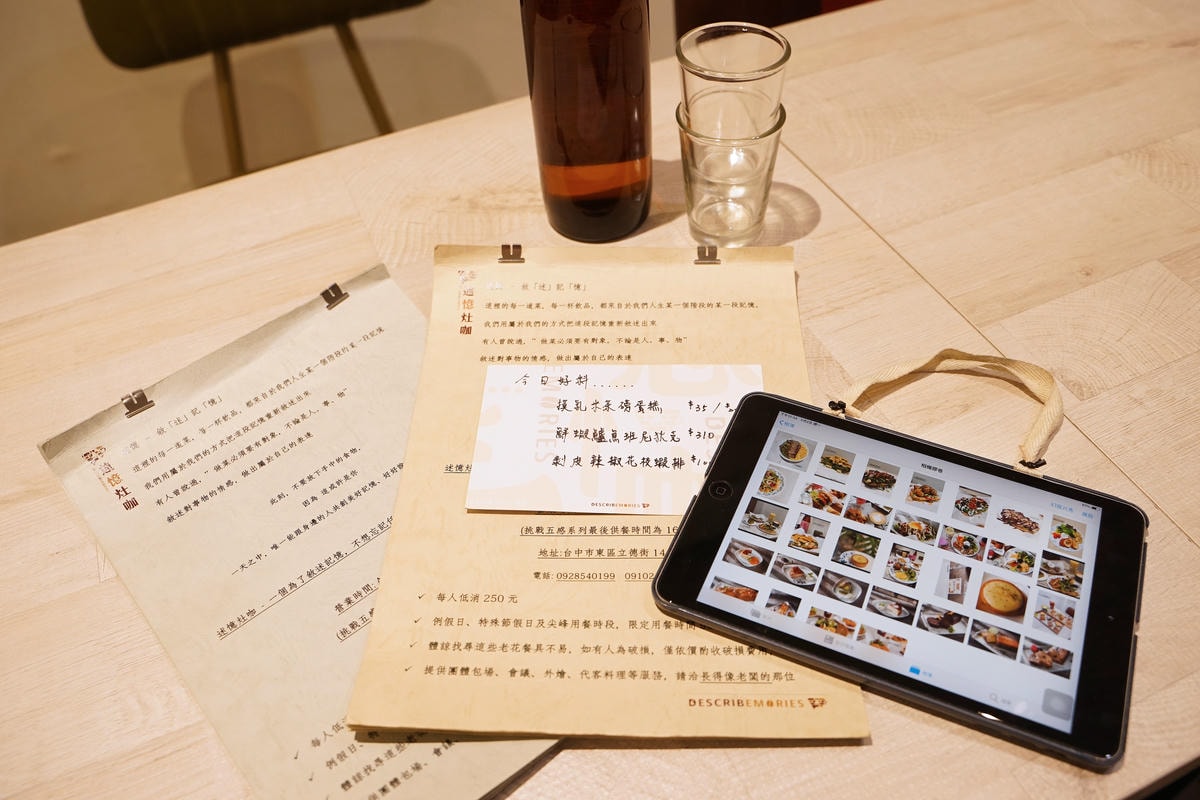 憶灶咖
敘「述」記「憶」
這裡的每一道菜，每一杯飲品，都來自於我們人生某一個階段的某一段記憶，
我們用屬於我們的方式把這段記憶重新敘述出來
有人曾說過，“ 做菜必須要有對象，不論是人、事、物”
敘述對事物的情感，做出屬於自己的表達
今日好料......
$35 /
鮮蝦鱸魚班尼狄克 $310
剝皮辣椒花枝蝦排
DESCRIBEMORIES
述憶灶
(挑戰五感系列最後供餐時間為 16
地址:台中市東區立德街 14
電話: 0928540199 09102
✓ 每人低消 250 元
✓ 例假日、特殊節假日及尖峰用餐時段，限定用餐時間
✓ 體諒找尋這些老花餐具不易，如有人為破損，僅依價酌收破損費用
✓ 提供團體包場、會議、外燴、代客料理等服務，請洽長得像老闆的那位
DESCRIBEMORIES
憶灶咖
敘「述」記「憶」
這裡的每一道菜，每一杯飲品，都來自於我們人生某一個階段的某一段記憶
我們用屬於我們的方式把這段記憶重新敘述出來
有人曾說過，“ 做菜必須要有對象，不論是人、事、物”
敘述對事物的情感，做出屬於自己的表達
此結，不要放下手中的食物，
因為 這或許是你
一天之中，唯一能跟身邊的人共創美好記憶，好好
述憶灶咖 - 一個為了敘述記憶，不想忘記
營業時間:
(挑戰五
✓ 每人低
✓ 例假日、
體諒找尋這些老
供團體包場、會議